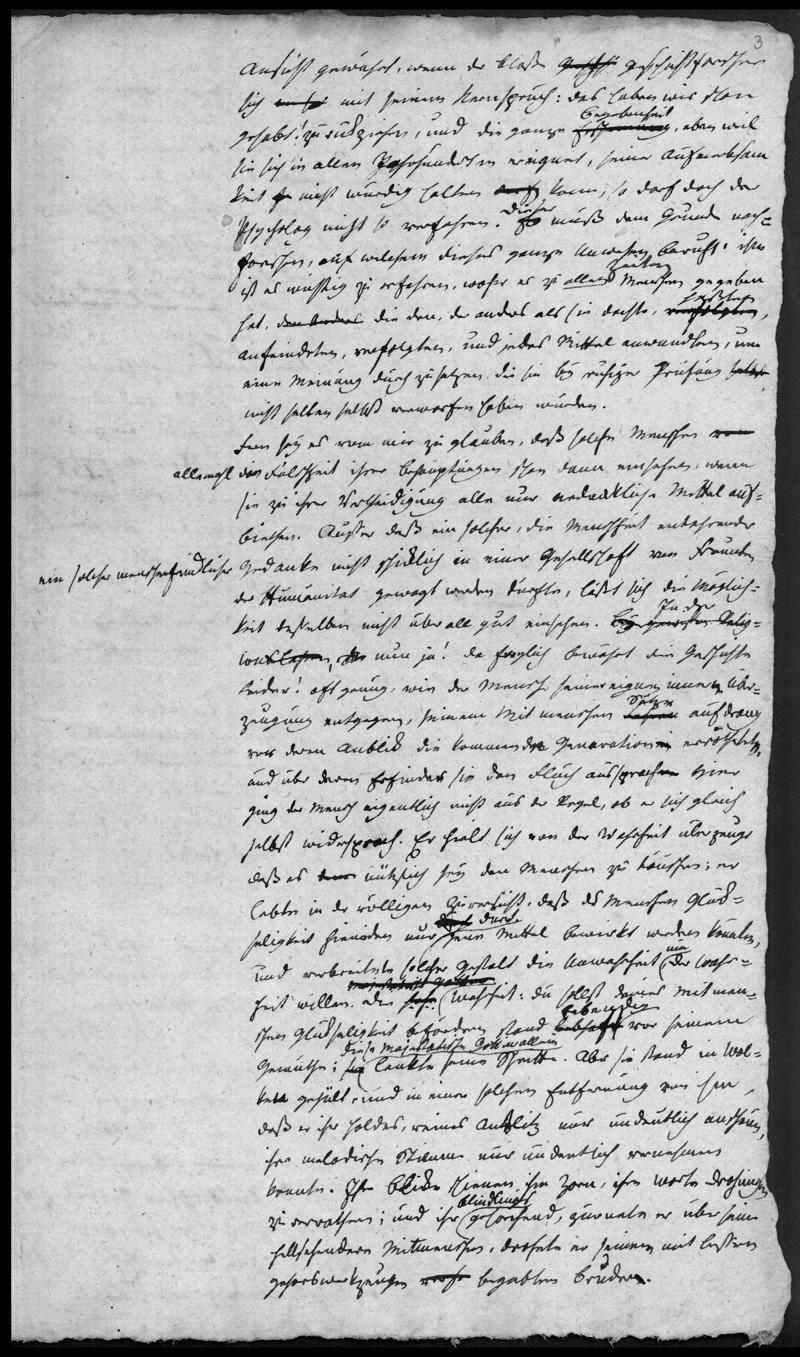 3
Ansicht gewährt, wenn der bloße Geschichtsforscher
sich mit seinem Kernspruch: das haben wir schon
gehabt! zurükziehen, und die ganze Begebenheit, eben weil
sie sich in allen Jahrhunderten ereignet, seiner Aufmerksam
keit nicht würdig halten kann, so darf doch der
Psycholog nicht so verfahren. Dieser muß dem Grunde nach=
forschen, auf welchem dieses ganze Unwesen beruht. ihm
ist es wichtig zu erfahren, woher es zu allen Zeiten Menschen gegeben
hat, die den, der anders als sie dachte, haßten,
anfeindeten, verfolgten, und jedes Mittel anwandten, um
eine Meinung durchzusetzen, die sie bey ruhiger Prüfung
nicht selten selbst verworfen haben würden.
Fern sey es von mir zu glauben, daß solche Menschen
allemahl die Falschheit ihrer Behauptungen schon dann einsehen, wenn
sie zu ihrer Vertheidigung alle nur erdenkliche Mittel auf=
biethen. Außer daß ein solcher, die Menschheit entehrender
ein solcher menschenfeindlicher Gedanke nicht schiklich in einer Gesellschaft von Freunden
der Humanitat gewagt werden durfte, läßt sich die Möglich=
keit desselben nicht überall gut einsehen. In der Relig=
ion nun ja! da freylich bewährt die Geschichte
leider! oft genug, wie der Mensch seiner eignen innern Über=
zeugung entgegen, seinem Mitmenschen Sätze aufdrang
vor deren Anblik die kommenden Generationen errötheten,
und über deren Erfinder sie den Fluch aussprachen. Hier
ging der Mensch eigentlich nicht aus der Regel, ob er sich gleich
selbst widersprach. Er hielt sich von der Wahrheit überzeugt
daß es nützlich sey den Menschen zu täuschen; er
lebte in der völligen Zuversicht, daß des Menschen Glük=
seligkeit hienieden nur durch jene Mittel bewirkt werden könnte,
und verbreitete solcher Gestalt die Unwahrheit um der Wahr=
heit willen. Die Wahrheit: du sollst deines Mitmen=
schen Glükseligkeit befördern stand lebendig vor seinem
Gemüthe; diese majestätische Gott lenkte seine Schritte. Aber sie stand in Wol=
ken gehült, und in einer solchen Entfernung von ihm,
daß er ihr holdes, reines Antlitz nur undeutlich anschauen,
ihre melodische Stimme nur undeutlich vernehmen
konnte. Ihre Blike schienen ihm Zorn, ihre Worte Drohungen
zu verrathen; und ihr blindlings gehorchend, zürnete er über seine
hellsehendern Mitmenschen, drohete er seinen mit bessern
Gehörswerkzeugen begabten Brüdern.